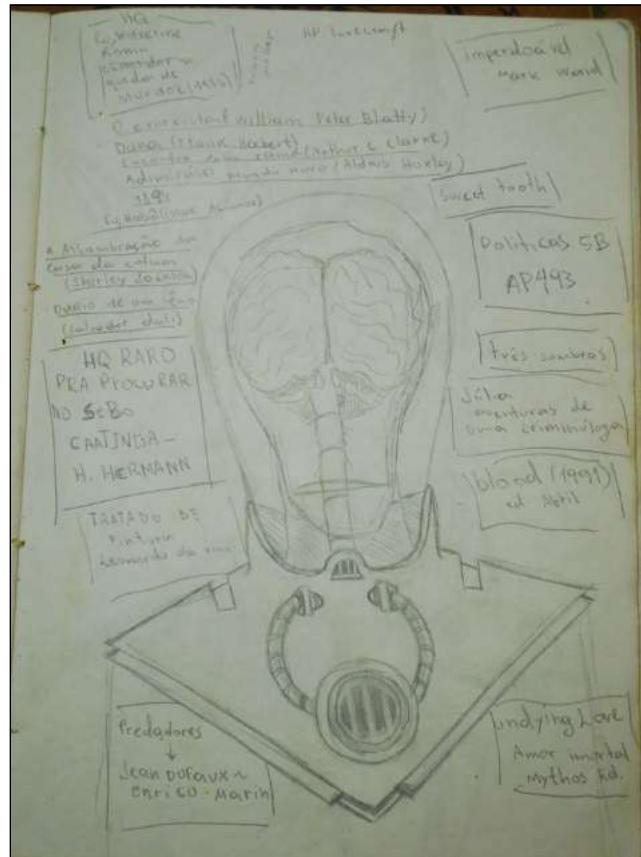 HQ
Wolverine
Ronin
Demolidor a
queda de
Murdock
HP Lovecraft
imperdoável
Mark Ward
O exorcista (William Peter Blatty)
Duna (Frank Herbert)
Encontro com Rama (Arthur C Clarke)
Admirável mundo novo (Aldous Huxley)
1984
Sweet tooth
A Assombração da
casa da colina
(Shirley Jackson)
Diário de um gênio
(Salvador Dali)
Políticas SB
AP493
HQ RARO
PRA PROCURAR
NO SEBO
CAATINGA -
H. HERMANN
três sombras
Júlia
aventuras de
uma criminóloga
blood (1991)
ed Abril
TRATADO DE
Pintura
Leonardo da vinci
Predadores
↓
Jean Dufaux ~
Enrico Marin
Undying Love
Amor imortal
Mythos Ed.